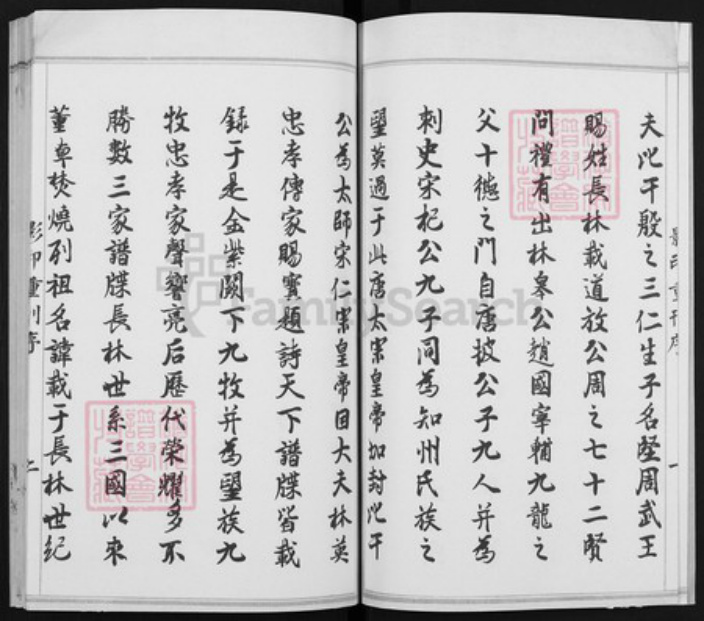 夫比干殷之三仁生子名堅周武王
賜姓長林載道放公周之七十二賢
問禮有出林皋公趙國宰輔九龍之
父十德之門自唐披公子九人并為
刺史宋杞公九子同為知州氏族之
望莫過于此唐太宗皇帝加封比干
公為太師宋仁宗皇帝因大夫林英
忠孝傳家賜實題詩天下譜牒皆載
錄于是金紫闕下九牧并為望族九
牧忠孝家聲響亮后歷代榮耀多不
勝數三家譜牒長林世系三國以來
董卓焚燒列祖名諱載于長林世紀
影印重刊序
一
影印重刊序
二
FamilySearch